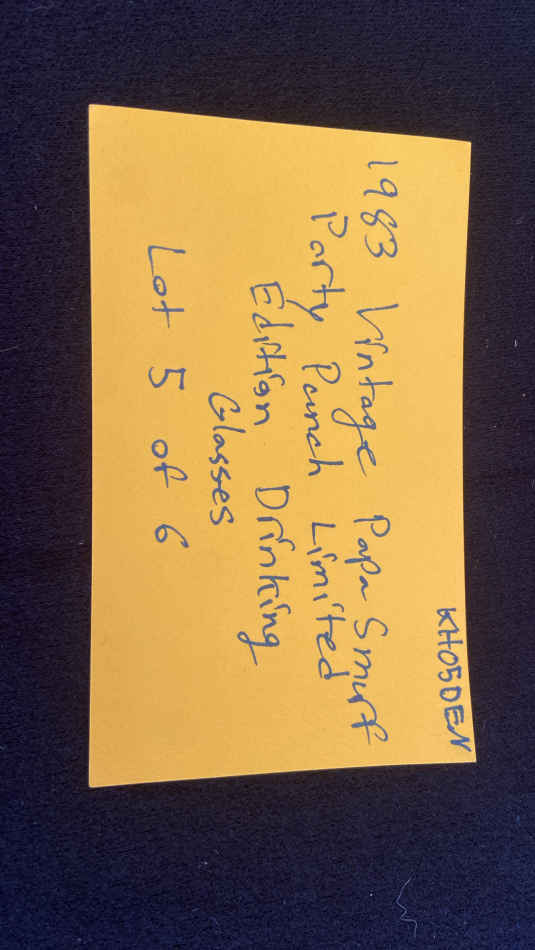 KH05DEN
1983 Vintage Papa Smurf
Party Punch Limited
Edition Drinking
Glasses
Lot 5 of 6